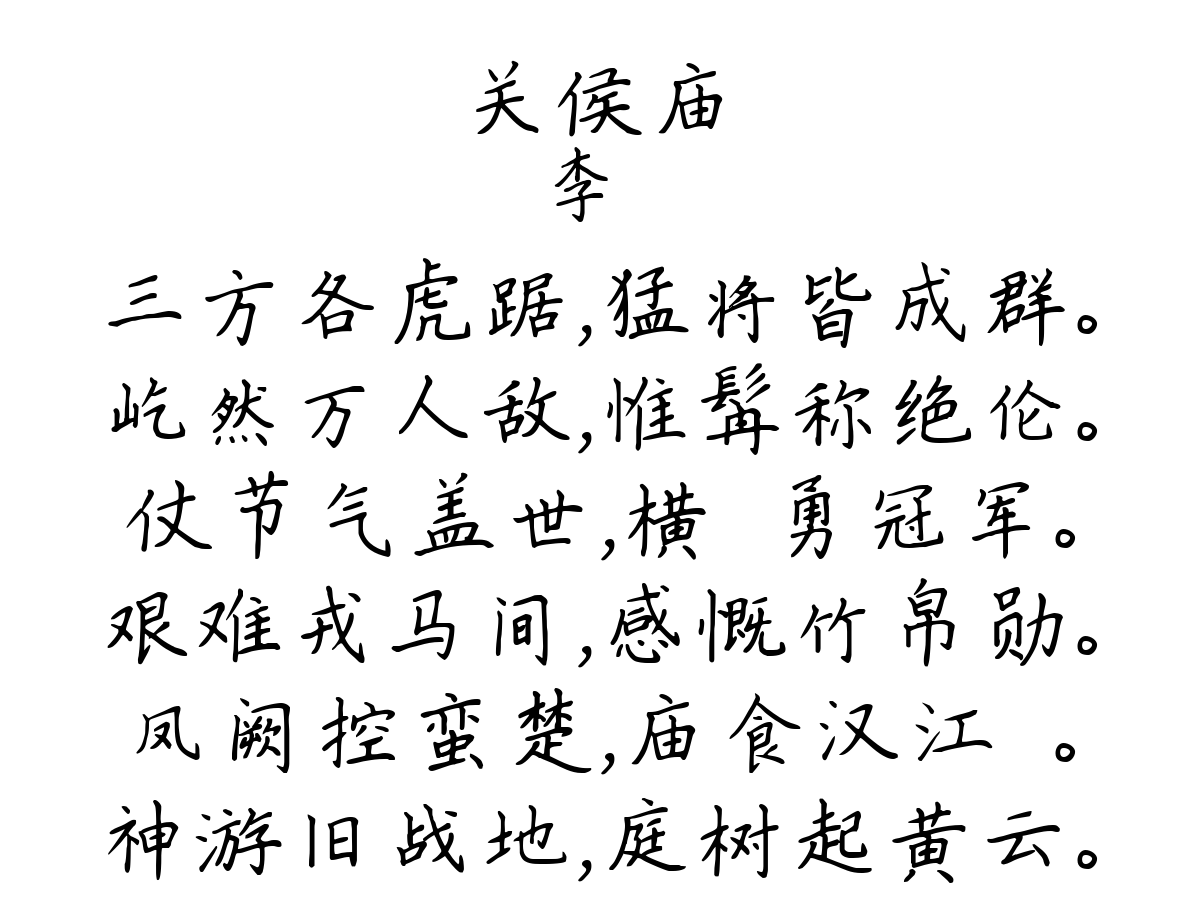 关侯庙
李
三方各虎踞,猛将皆成群。
屹然万人敌,惟髯称绝伦。
仗节气盖世,横 勇冠军。
艰难戎马间,感慨竹帛勋。
凤阙控蛮楚,庙食汉江 。
神游旧战地,庭树起黄云。